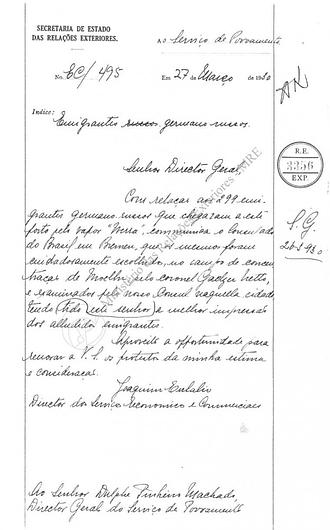 SECRETARIA DE ESTADO
DAS RELAÇÕES EXTERIORES.
ao Serviço de Povoamento.
No. EC/495
Em 27 de Março de 1930
Indice: Emigrantes russos germano russos.
R.E.
3356
EXP.
Senhor Director Geral
Com relação aos 299 emi-
grantes germano russos que chegaram a este
porto pelo vapor "Werra", communica o Consulado
do Brasil em Bremen, que os mesmos foram
cuidadosamente escolhidos, no campo de concen-
tração de Moelln, pelo coronel Gaelzer Netto,
e examinados pelo nosso Consul naquella cidade
tendo tido este senhor a melhor impressão
dos alludidos emigrantes.
Aproveito a opportunidade para
renovar a V. S. os protestos da minha estima
e consideração.
Joaquim Eulalio
Director dos Serviços Economicos e Commerciaes
Ao Senhor Dulphe Pinheiro Machado,
Director Geral do Serviço de Povoamento